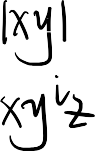 |xy|
xy^iz